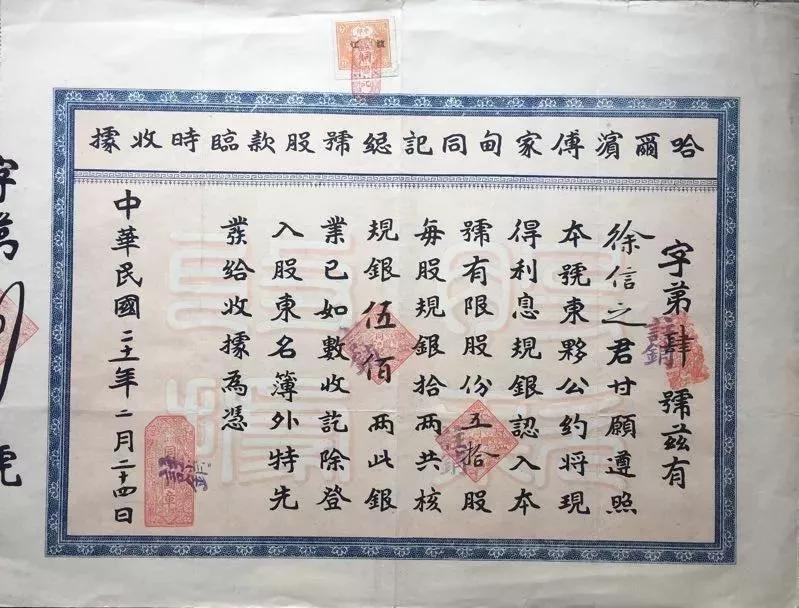 哈爾濱傅家甸同記總號股款臨時收據
字第肆號茲有
徐信之君甘願遵照
本號東夥公約將現
得利息規銀認入本
號有限股份五拾股
每股規銀拾兩共核
規銀伍佰兩此銀
業已如數收訖除登
入股東名簿外特先
發給收據為憑
中華民國二十一年二月二十四日
註銷
註銷
註銷
字第
號